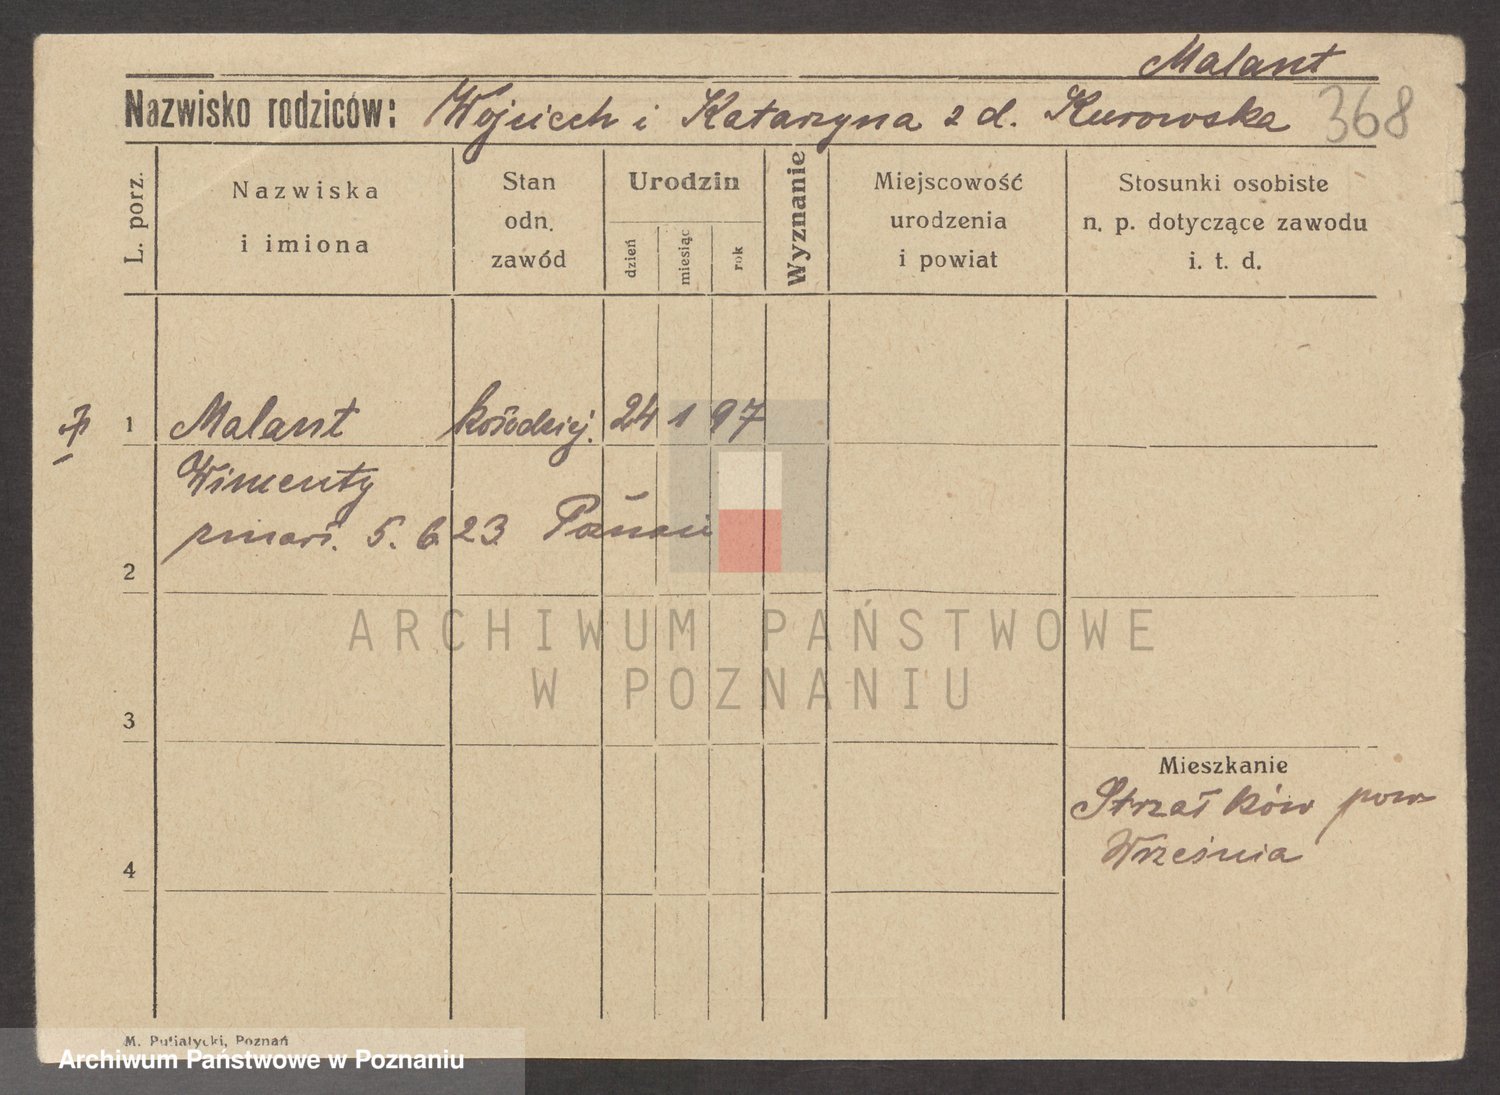 Malant
Nazwisko rodziców: Wojciech i Katarzyna z d. Kurowska 368
L. porz.
Nazwiska
i imiona
Stan
odn.
zawód
Urodzin
dzień
miesiąc
rok
Wyznanie
Miejscowość
urodzenia
i powiat
Stosunki osobiste
n. p. dotyczące zawodu
i. t. d.
1 Malant kołodziej. 24 1 97
Wincenty
zmarł. 5. 6 23 Poznań
2
ARCHIWUM PAŃSTWOWE
W POZNANIU
3
Mieszkanie
Strzałków pow
Września
4
M. Putiatycki, Poznań
Archiwum Państwowe w Poznaniu